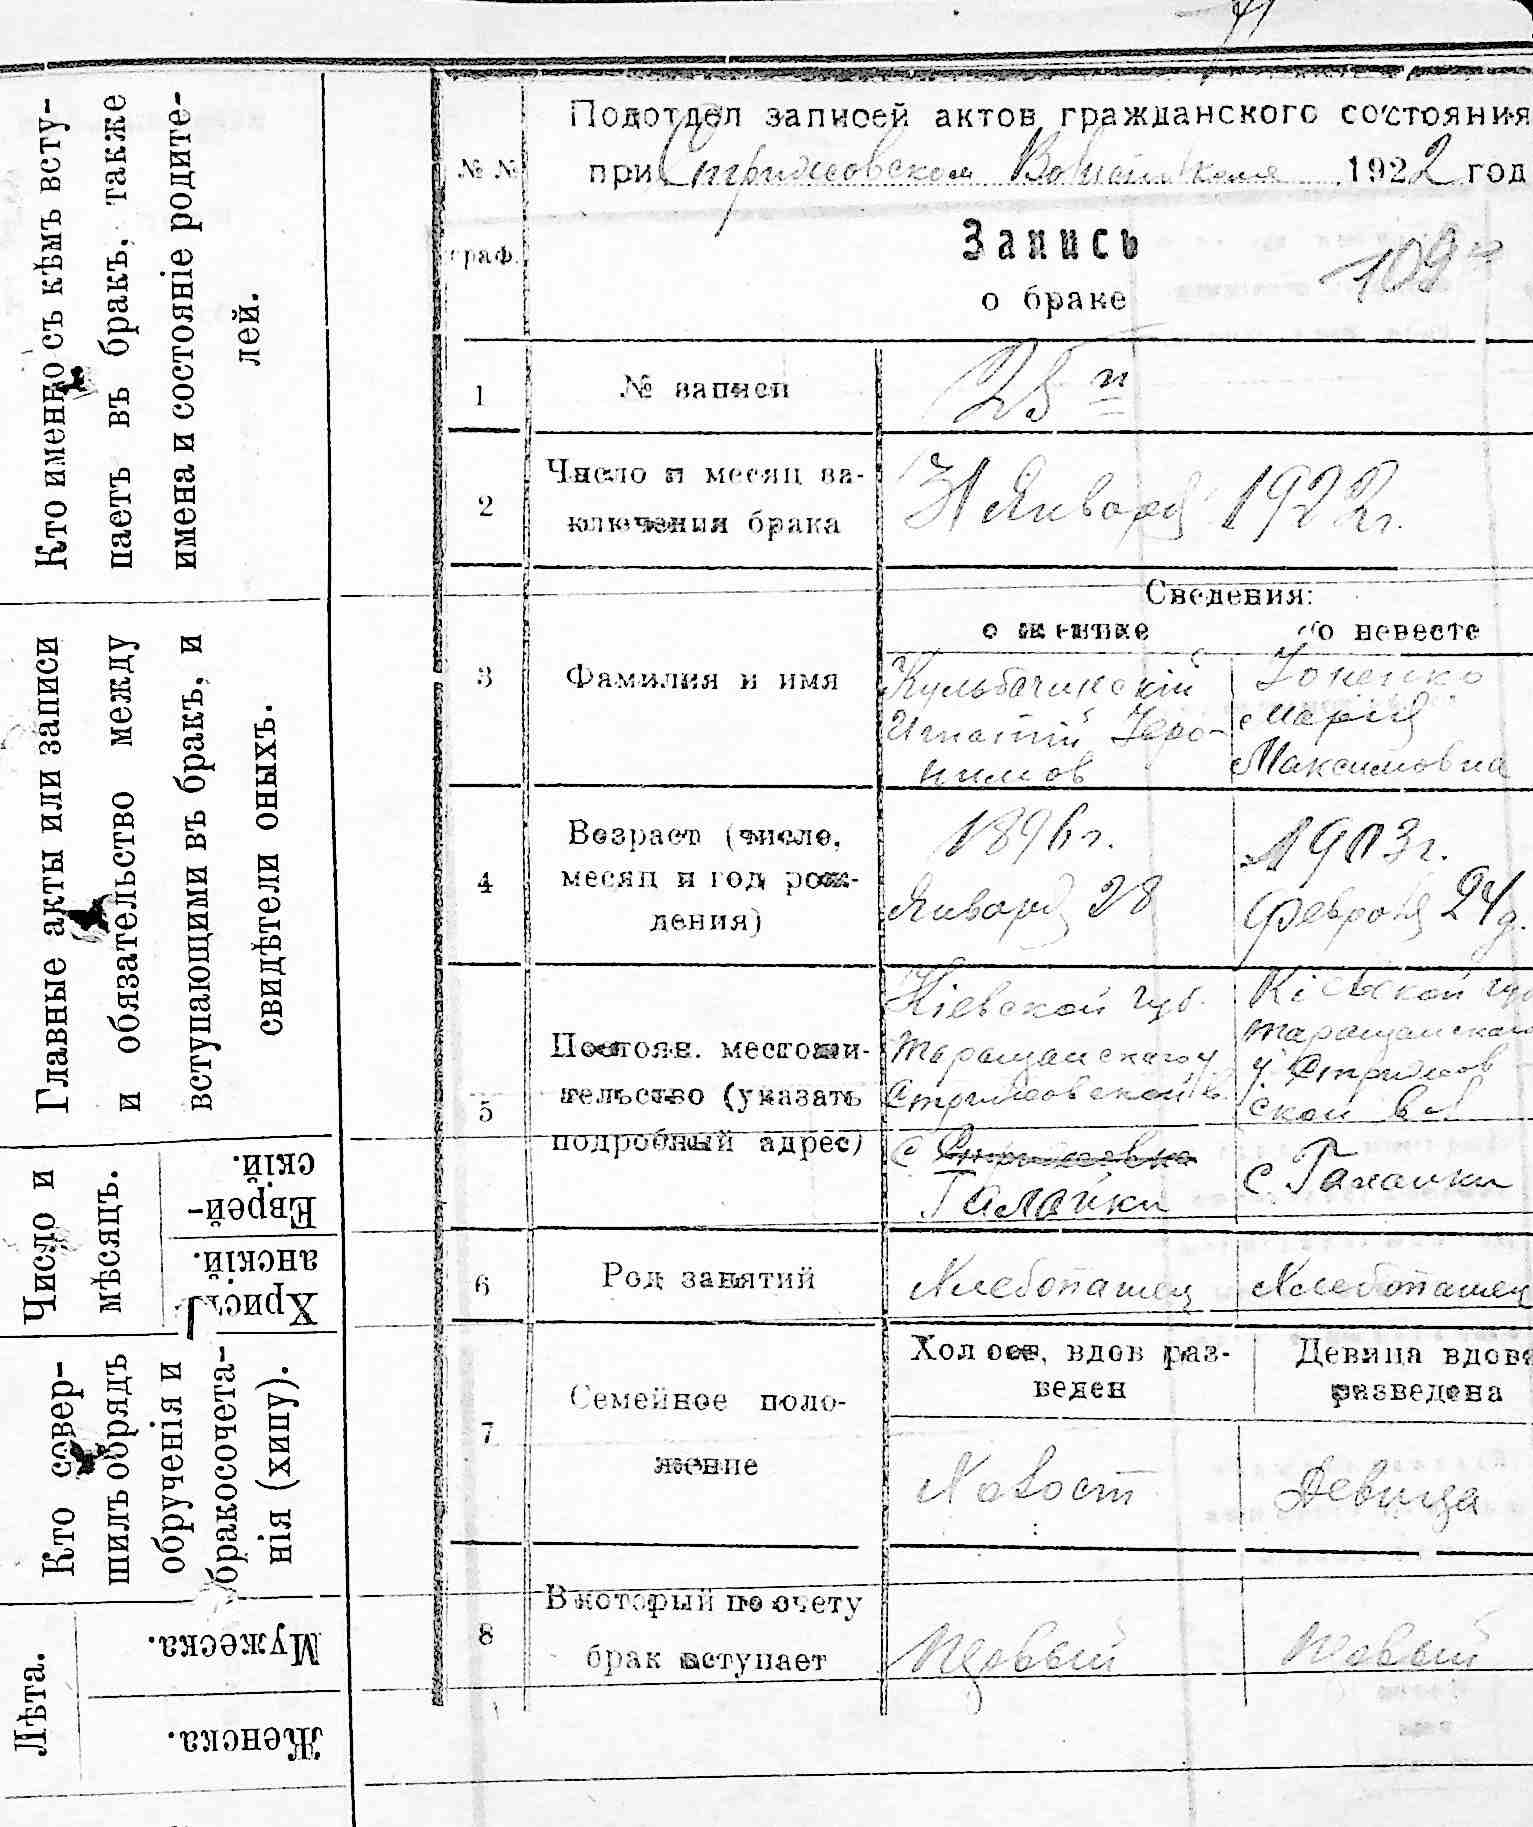 Кто именно съ кѣмъ всту-
паетъ въ бракъ, также
имена и состояніе родите-
лей.
Главные акты или записи
и обязательство между
вступающими въ бракъ, и
свидѣтели оныхъ.
Число и
мѣсяцъ.
Еврей-
скій.
Христі-
анскій.
Кто совер-
шилъ обрядъ
обрученія и
бракосочета-
нія (хипу).
Лѣта.
Мужеска.
Женска.
№ №
граф.
Подотдел записей актов гражданского состояния
при Стрижовском 1922 год
Запись
о браке
109
1
№ записи
25
2
Число и месяц за-
ключения брака
31 Января 1922 г.
Сведения:
о женихе
о невесте
3
Фамилия и имя
Кульбачинскій
Игнатій Іеро-
нимов
Мария
Максимовна
4
Возраст (число,
месяц и год рож-
дения)
1896 г.
Января 28
1903 г.
Февраля 24 д.
5
Постоян. местожи-
тельство (указать
подробный адрес)
Кіевской губ.
Таращанскаго у
Стрижовской в.
с Стрижовка
Галайки
Кіевской губ
Таращанскаго
у. Стрижов
ской вл
с Галайки
6
Род занятий
Хлебопашец
Хлебопашец
7
Семейное поло-
жение
Холост, вдов раз-
веден
Девица вдова
разведена
Холост
Девица
8
В который по счету
брак вступает
Первый
Первый